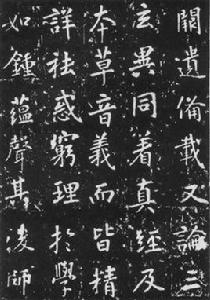 闕遺備載又論三
玄異同着真經及
本草音義而皆精
詳祛惑窮理於學
如鍾蘊聲其後師